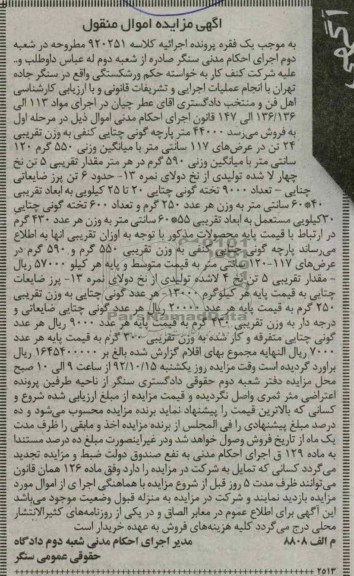 آگهی
آگهی مزایده اموال منقول
به موجب یک فقره پرونده اجرائیه کلاسه ۹۲۰۲۵۱ مطروحه در شعبه
دوم اجرای احکام مدنی سنگر صادره از شعبه دوم له عباس داوطلب و..
علیه شرکت کنف کار به خواسته حکم ورشکستگی واقع در سنگر جاده
تهران با انجام عملیات اجرایی و تشریفات قانونی و با ارزیابی کارشناسی
اهل فن و منتخب دادگستری اقای عطر چیان در اجرای مواد ۱۱۳ الی
۱۳۶/۱۳۶ الی ۱۴۷ قانون اجرای احکام مدنی اموال ذیل در مرحله اول
به فروش می‌رسد ۴۴۰۰۰ متر پارچه گونی چتایی کنفی به وزن تقریبی
۲۴ تن در عرض‌های ۱۱۷ سانتی متر با میانگین وزنی ۵۵۰ گرم ۱۲۰
سانتی متر با میانگین وزنی ۵۹۰ گرم در هر متر مقدار تقریبی ۵ تن نخ
چهار لا شده تولیدی از نخ دولای نمره ۱۳- حدود ۶ تن پرز ضایعاتی
چتایی – تعداد ۹۰۰۰ تخته گونی چتایی ۲۰ تا ۲۵ کیلویی به ابعاد تقریبی
۴۰*۶۰ سانتی متر به وزن هر عدد ۲۵۰ گرم و تعداد ۶۰۰ تخته گونی چتایی
۳۰کیلویی مستعمل به ابعاد تقریبی ۵۵*۶۰ سانتی متر به وزن هر عدد ۴۳۰ گرم
در ارتباط با قیمت پایه محصولات مذکور با توجه به اوزان تقریبی انها به اطلاع
می‌رساند پارچه گونی چتایی کنفی به وزن تقریبی ۵۵۰ گرم و ۵۹۰ گرم در
عرض‌های ۱۱۷-۱۲۰ سانتی متر به قیمت متوسط و پایه هر کیلو ۵۷۰۰۰ ریال
- مقدار تقریبی ۵ تن نخ ۴ لاشده تولیدی از نخ دولای نمره ۱۳- پرز ضایعات
چتایی به قیمت پایه هر کیلوگرم ۱۳۰۰۰- هر عدد گونی چتایی به وزن تقریبی
۲۵۰ گرم به قیمت پایه هر عدد ۲۰۰۰۰ ریال هر عدد گونی چتایی ضایعاتی و
درجه دار به وزن تقریبی ۴۳۰ گرم به قیمت پایه هر عدد ۹۰۰۰ ریال هر عدد
گونی چتایی متفرقه و کار شده به وزن تقریبی ۳۰۰ گرم به قیمت پایه هر عدد
۷۰۰۰ ریال النهایه مجموع بهای اقلام گزارش شده بالغ بر ۱۶۴۵۴۰۰۰۰۰ ریال
براورد گردیده است وقت مزایده روز یکشنبه ۹۲/۱۰/۱۵ از ساعت ۹ الی ۱۰ صبح
محل مزایده دفتر شعبه دوم حقوقی دادگستری سنگر از ناحیه طرفین پرونده
اعتراضی مثر ثمری واصل نگردیده و قیمت مزایده از مبلغ ارزیابی شده شروع و
کسانی که بالاترین قیمت را پیشنهاد نماید برنده مزایده محسوب می‌شود و ده
درصد مبلغ پیشنهادی را فی المجلس از برنده مزایده اخذ و مابقی را ظرف مدت
یک ماه از تاریخ فروش وصول خواهد شد ودر غیراینصورت مبلغ ده درصد مستندا
به ماده ۱۲۹ ق اجرای احکام مدنی به نفع صندوق دولت ضبط و مزایده تجدید
می‌گردد کسانی که تمایل به شرکت در مزایده را دارد وفق ماده ۱۲۶ همان قانون
می‌توانند ظرف مدت ۵ روز قبل از شروع مزایده با هماهنگی اجرا ی از اموال مورد
مزایده بازدید نمایند و شرکت در مزایده به منزله قبول وضعیت موجود می‌باشد
این آگهی برای اطلاع عموم در معابر الصاق و در یکی از روزنامه‌های کثیرالانتشار
محلی درج می‌گردد کلیه هزینه‌های فروش به عهده خریدار است
م الف ۸۸۰۸ مدیر اجرای احکام مدنی شعبه دوم دادگاه
حقوقی عمومی سنگر
۲۵۱۳